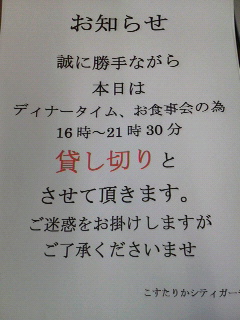 お知らせ
誠に勝手ながら
本日は
ディナータイム、お食事会の為
16時～21時30分
貸し切りと
させて頂きます。
ご迷惑をお掛けしますが
ご了承くださいませ
こすたりかシティガー